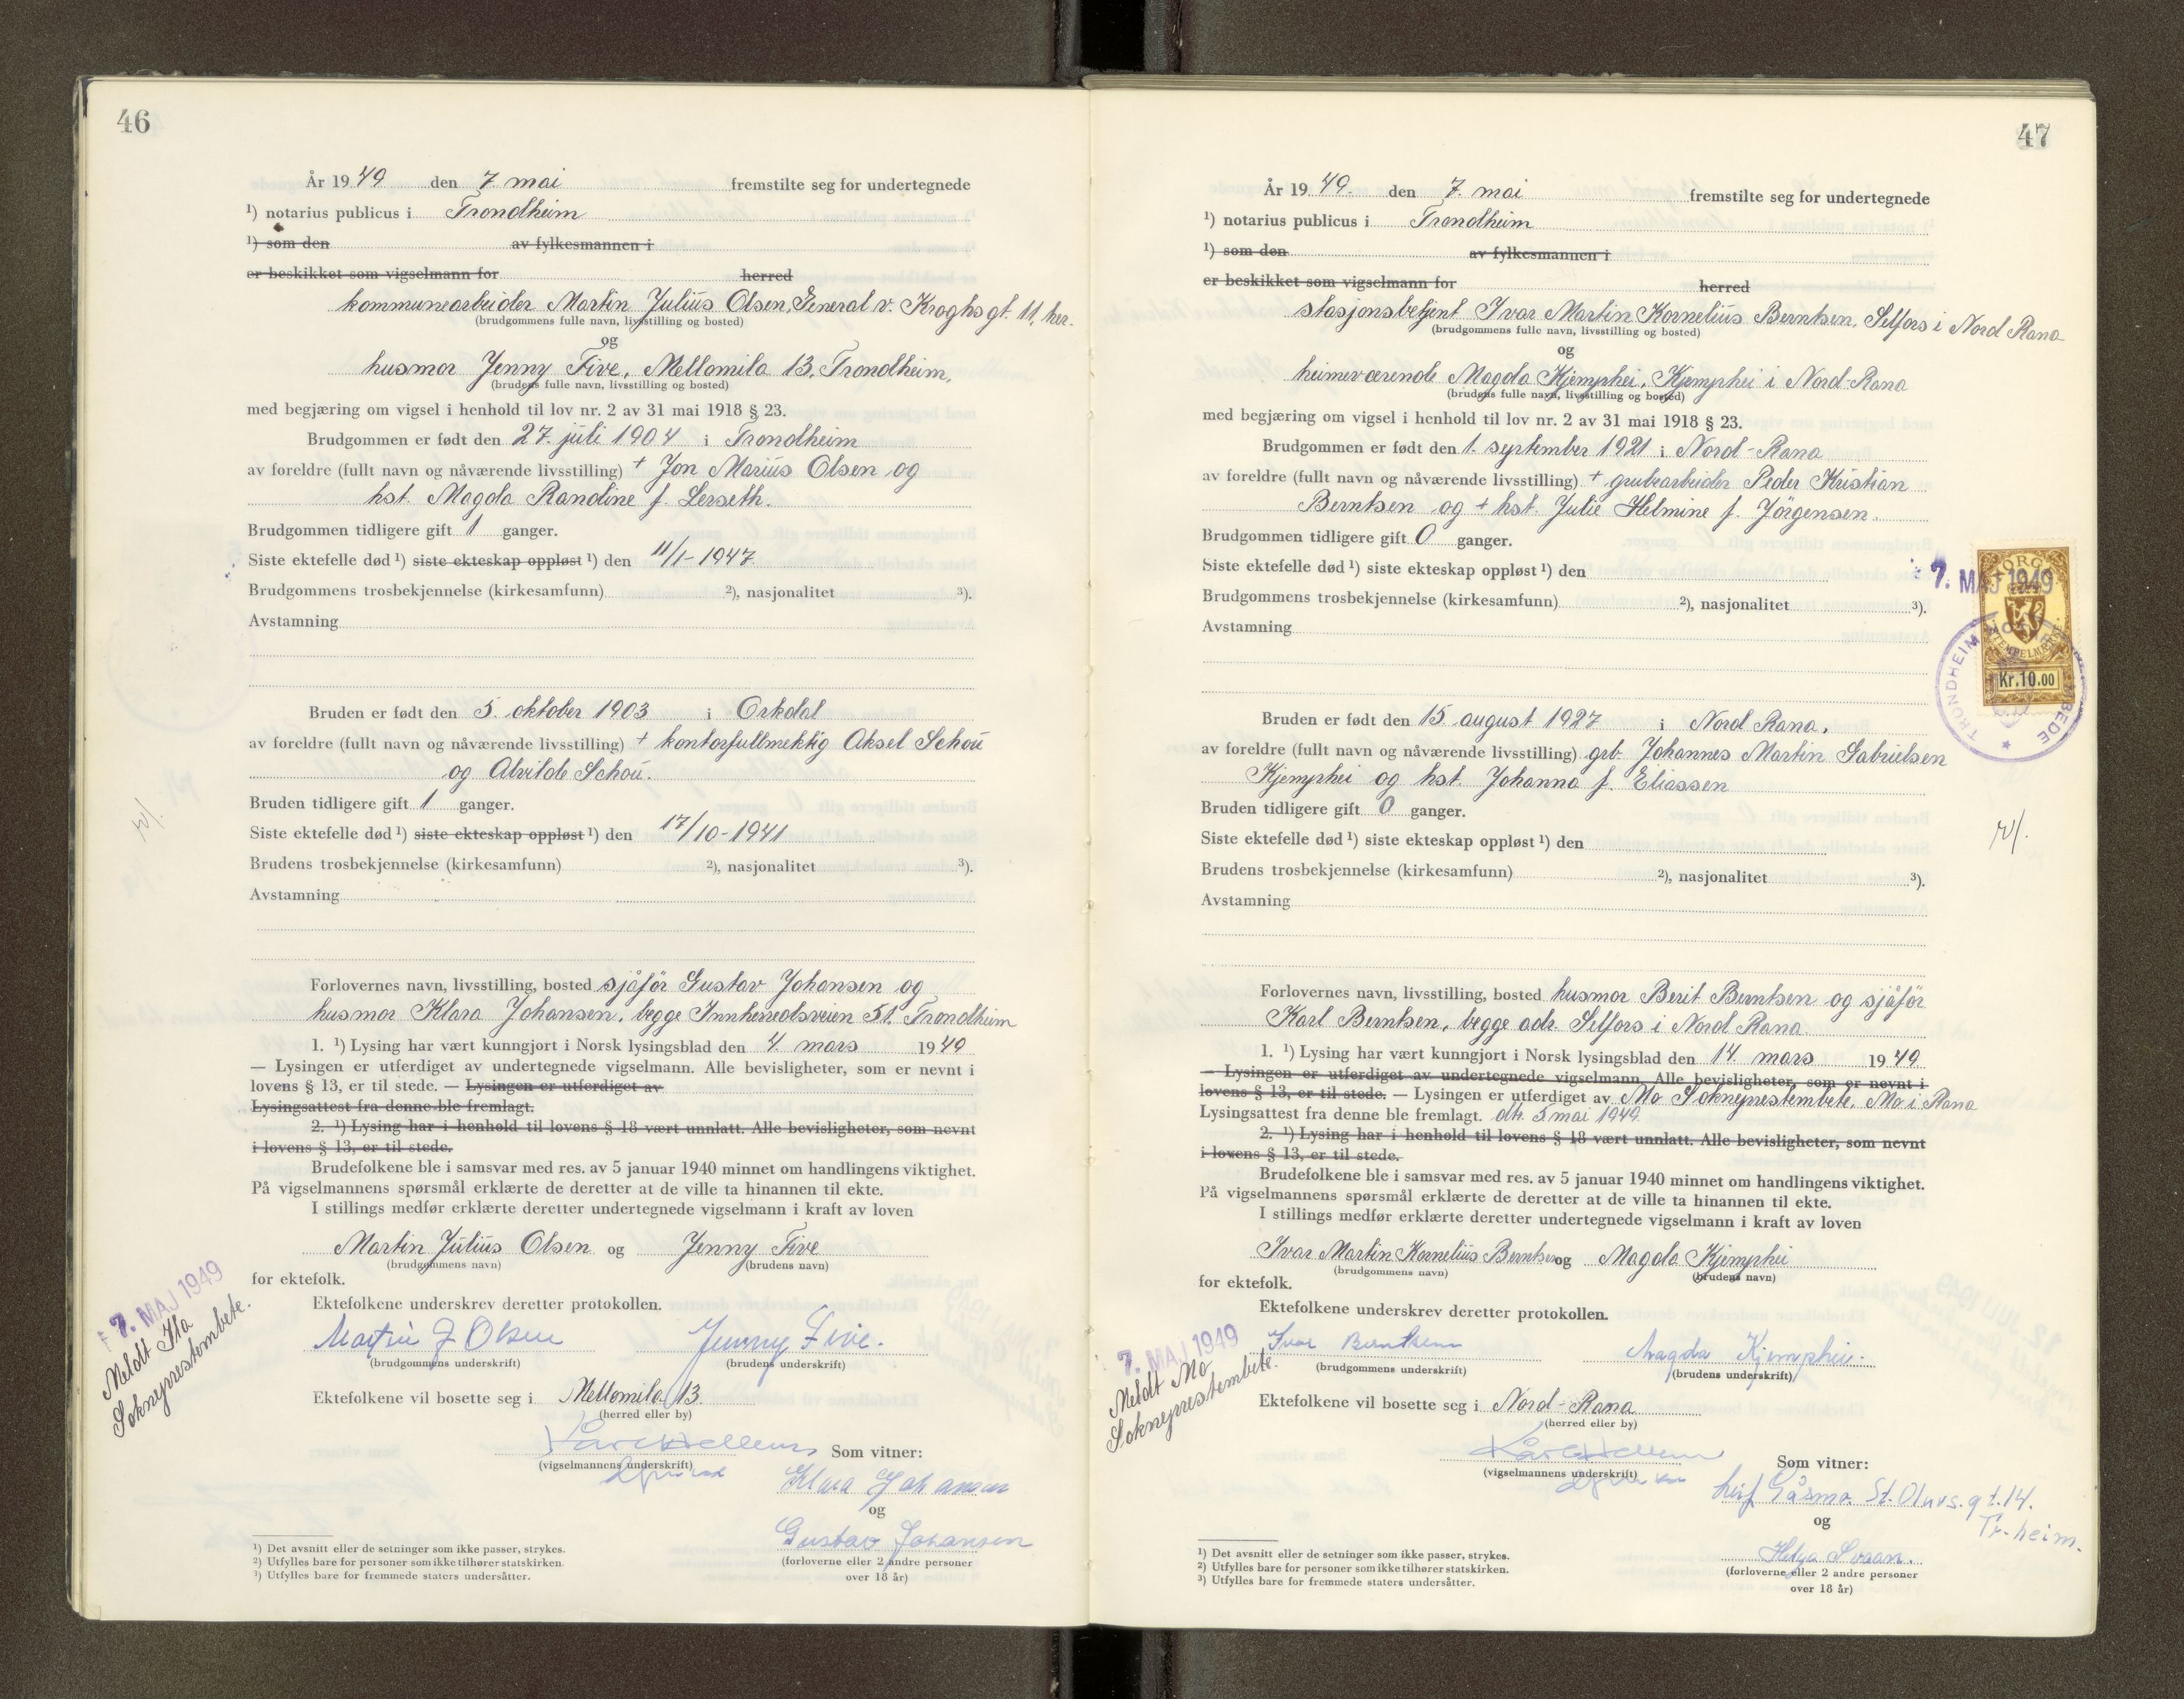 46
År 19 49 den 7. mai fremstilte seg for undertegnede
¹) notarius publicus i Trondheim
¹) som den av fylkesmannen i
er beskikket som vigselmann for herred
kommunearbeider Martin Julius Olsen, General v. Kroghs gt. 11, her.
(brudgommens fulle navn, livsstilling og bosted)
og
husmor Jenny Five, Mellomila 13, Trondheim.
(brudens fulle navn, livsstilling og bosted)
med begjæring om vigsel i henhold til lov nr. 2 av 31 mai 1918 § 23.
Brudgommen er født den 27. juli 1904 i Trondheim
av foreldre (fullt navn og nåværende livsstilling) + Jon Marius Olsen og
hst. Magda Randine f. Lerseth.
Brudgommen tidligere gift 1 ganger.
Siste ektefelle død ¹) siste ekteskap oppløst ¹) den 11/1-1947
Brudgommens trosbekjennelse (kirkesamfunn) ²), nasjonalitet ³).
Avstamning
Bruden er født den 5. oktober 1903 i Orkdal
av foreldre (fullt navn og nåværende livsstilling) + kontorfullmektig Aksel Schou
og Alvilde Schou.
Bruden tidligere gift 1 ganger.
Siste ektefelle død ¹) siste ekteskap oppløst ¹) den 17/10-1941
Brudens trosbekjennelse (kirkesamfunn) ²), nasjonalitet ³).
Avstamning
Forlovernes navn, livsstilling, bosted sjåför Gustav Johansen og
husmor Klara Johansen, begge Innherredsveien 51, Trondheim
1. ¹) Lysing har vært kunngjort i Norsk lysingsblad den 4. mars 1949
— Lysingen er utferdiget av undertegnede vigselmann. Alle bevisligheter, som er nevnt i
lovens § 13, er til stede. — Lysingen er utferdiget av
Lysingsattest fra denne ble fremlagt.
2. ¹) Lysing har i henhold til lovens § 18 vært unnlatt. Alle bevisligheter, som nevnt
i lovens § 13, er til stede.
Brudefolkene ble i samsvar med res. av 5 januar 1940 minnet om handlingens viktighet.
På vigselmannens spørsmål erklærte de deretter at de ville ta hinannen til ekte.
I stillings medfør erklærte deretter undertegnede vigselmann i kraft av loven
Martin Julius Olsen og Jenny Five
(brudgommens navn) (brudens navn)
for ektefolk.
Ektefolkene underskrev deretter protokollen.
7. MAJ 1949
Meldt Ila
Sokneprestembete.
Martin J Olsen Jenny Five.
(brudgommens underskrift) (brudens underskrift)
Ektefolkene vil bosette seg i Mellomila 13.
(herred eller by)
Som vitner:
(vigselmannens underskrift)
Klara Johansen
og
Gustav Johansen
(forloverne eller 2 andre personer
over 18 år)
¹) Det avsnitt eller de setninger som ikke passer, strykes.
²) Utfylles bare for personer som ikke tilhører statskirken.
³) Utfylles bare for fremmede staters undersåtter.
47
År 19 49. den 7. mai fremstilte seg for undertegnede
¹) notarius publicus i Trondheim
¹) som den av fylkesmannen i
er beskikket som vigselmann for herred
stasjonsbetjent Ivar Martin Kornelius Berntsen, Selfors i Nord Rana
(brudgommens fulle navn, livsstilling og bosted)
og
heimeværende Magda Kjemphei, Kjemphei i Nord-Rana
(brudens fulle navn, livsstilling og bosted)
med begjæring om vigsel i henhold til lov nr. 2 av 31 mai 1918 § 23.
Brudgommen er født den 1. september 1921 i Nord-Rana
av foreldre (fullt navn og nåværende livsstilling) + grubearbeider Peder Kristian
Berntsen og + hst. Julie Helmine f. Jörgensen.
Brudgommen tidligere gift 0 ganger.
Siste ektefelle død ¹) siste ekteskap oppløst ¹) den
Brudgommens trosbekjennelse (kirkesamfunn) ²), nasjonalitet ³).
Avstamning
7. MAJ 1949
NORGE
STEMPELMERKE
Kr.10.00
TRONDHEIM
Bruden er født den 15. august 1927 i Nord Rana.
av foreldre (fullt navn og nåværende livsstilling) grb. Johannes Martin Gabrielsen
Kjemphei og hst. Johanna f. Eliassen
Bruden tidligere gift 0 ganger.
Siste ektefelle død ¹) siste ekteskap oppløst ¹) den
Brudens trosbekjennelse (kirkesamfunn) ²), nasjonalitet ³).
Avstamning
Forlovernes navn, livsstilling, bosted husmor Berit Berntsen og sjåför
Karl Berntsen, begge adr. Selfors i Nord Rana.
1. ¹) Lysing har vært kunngjort i Norsk lysingsblad den 14. mars 1949
— Lysingen er utferdiget av undertegnede vigselmann. Alle bevisligheter, som er nevnt i
lovens § 13, er til stede. — Lysingen er utferdiget av Mo Sokneprestembete, Mo i Rana
Lysingsattest fra denne ble fremlagt. dtr. 5 mai 1949.
2. ¹) Lysing har i henhold til lovens § 18 vært unnlatt. Alle bevisligheter, som nevnt
i lovens § 13, er til stede.
Brudefolkene ble i samsvar med res. av 5 januar 1940 minnet om handlingens viktighet.
På vigselmannens spørsmål erklærte de deretter at de ville ta hinannen til ekte.
I stillings medfør erklærte deretter undertegnede vigselmann i kraft av loven
Ivar Martin Kornelius Berntsen og Magda Kjemphei
(brudgommens navn) (brudens navn)
for ektefolk.
Ektefolkene underskrev deretter protokollen.
7. MAJ 1949
Meldt Mo
Sokneprestembete.
Ivar Berntsen Magda Kjemphei.
(brudgommens underskrift) (brudens underskrift)
Ektefolkene vil bosette seg i Nord-Rana
(herred eller by)
Som vitner:
(vigselmannens underskrift)
Leif Gåsmo St. Olavs. gt. 14.
Tr.heim.
og
Helga Svaan.
(forloverne eller 2 andre personer
over 18 år)
¹) Det avsnitt eller de setninger som ikke passer, strykes.
²) Utfylles bare for personer som ikke tilhører statskirken.
³) Utfylles bare for fremmede staters undersåtter.